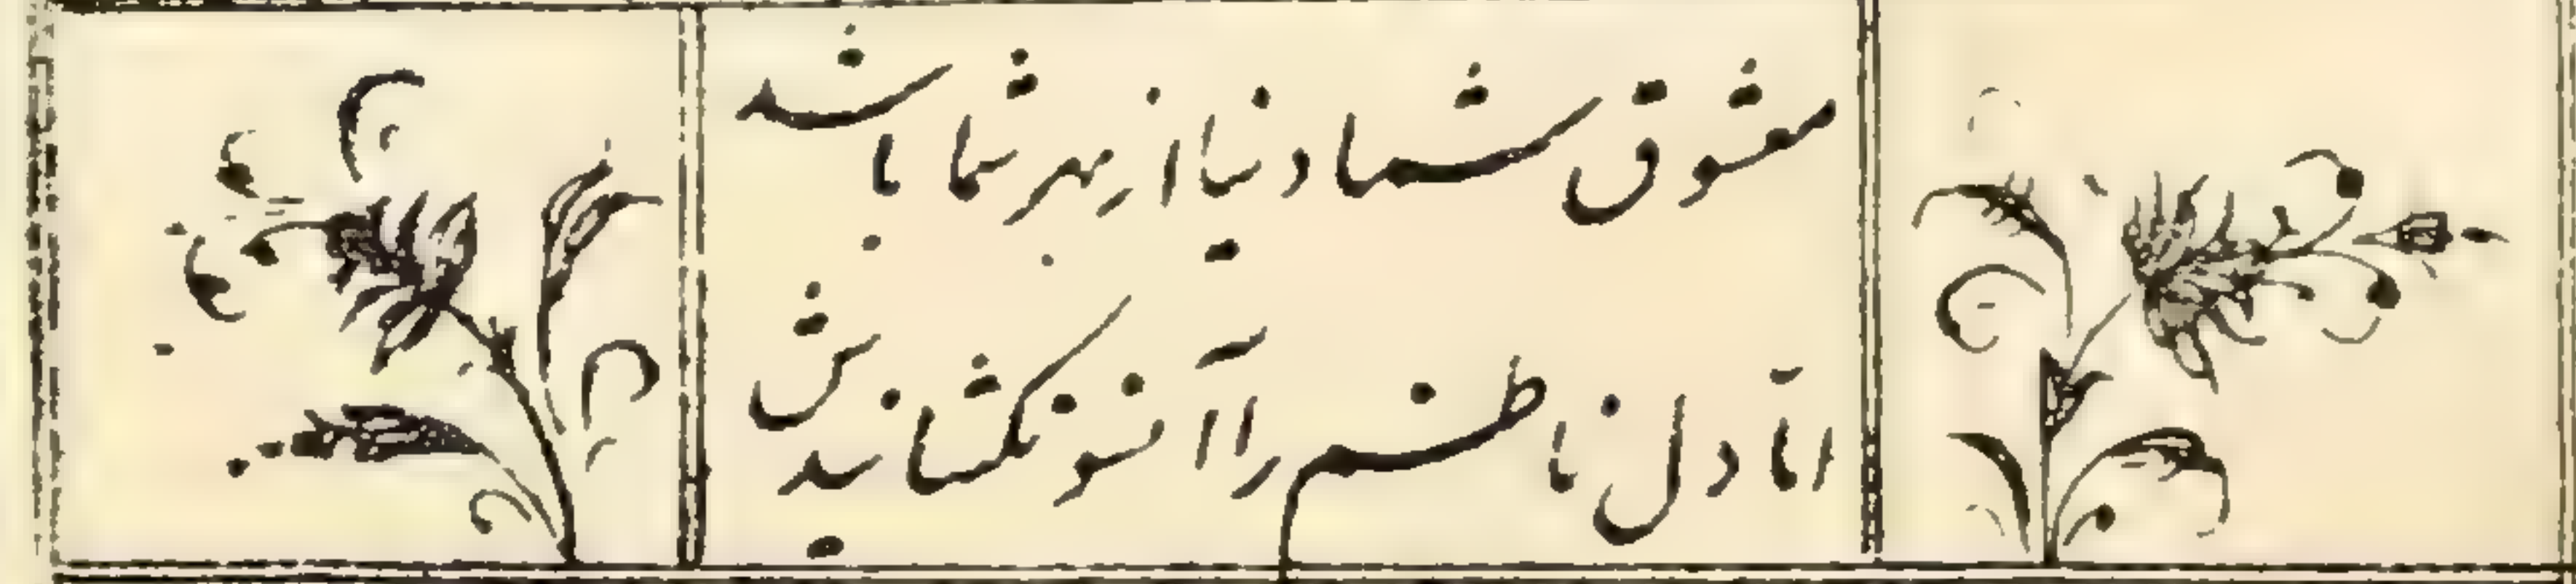 معشوق شما دنیا از بهر شما باشد
امّا دل ناظم را آنسو نکشانیدش